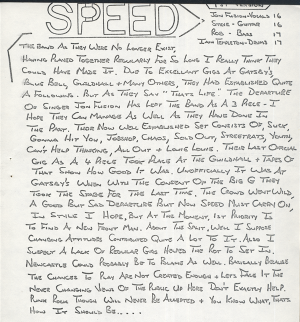 SPEED
JON FUSION - VOCALS 16
STEVE - GUITAR 16
ROB - BASS 17
IAN TEMPLETON - DRUMS 17
THE BAND AS THEY WERE NO LONGER EXIST,
HAVING PLAYED TOGETHER REGULARLY FOR SO LONG I REALLY THINK THEY
COULD HAVE MADE IT. DUE TO EXCELLENT GIGS AT GATSBY'S
BLUE BELL, GUILDHALL + MANY OTHERS, THEY HAD ESTABLISHED QUITE
A FOLLOWING. BUT AS THEY SAY "THATS LIFE". THE DEPARTURE
OF SINGER JON FUSION HAS LEFT THE BAND AS A 3 PIECE - I
HOPE THEY CAN MANAGE AS WELL AS THEY HAVE DONE IN
THE PAST, THEIR NOW WELL ESTABLISHED SET CONSISTS OF, SUCK,
GONNA HIT YOU, JOBSHOP, CHAOS, SOLD OUT, STREETFIGHTS, YOUTH,
CAN'T HELP THINKING, ALL OUT + LOUIE LOUIE. THEIR LAST OFFICIAL
GIG AS A 4 PIECE TOOK PLACE AT THE GUILDHALL + TAPES OF
THAT SHOW HOW GOOD IT WAS. UNOFFICIALLY IT WAS AT
GATSBY'S WHEN WITH THE CONSENT OF THE BIG G THEY
TOOK THE STAGE FOR THE LAST TIME, THE CROWD WENT WILD
A GOOD BUT SAD DEPARTURE BUT NOW SPEED MUST CARRY ON,
IN STYLE I HOPE, BUT AT THE MOMENT, 1ST PRIORITY IS
TO FIND A NEW FRONT MAN. ABOUT THE SPLIT, WELL I SUPPOSE
CHANGING ATTITUDES CONTRIBUTED QUITE A LOT TO IT. ALSO I
SUPPOSE A LACK OF REGULAR GIGS HELPED THE ROT TO SET IN,
NEWCASTLE COULD PROBABLY BE TO BLAME AS WELL, BASICALLY BECAUSE
THE CHANCES TO PLAY ARE NOT CREATED ENOUGH + LETS FACE IT THE
NEVER CHANGING VIEWS OF THE PUBLIC UP HERE DON'T EXACTLY HELP.
PUNK ROCK THOUGH WILL NEVER BE ACCEPTED + YOU KNOW WHAT, THATS
HOW IT SHOULD BE.....